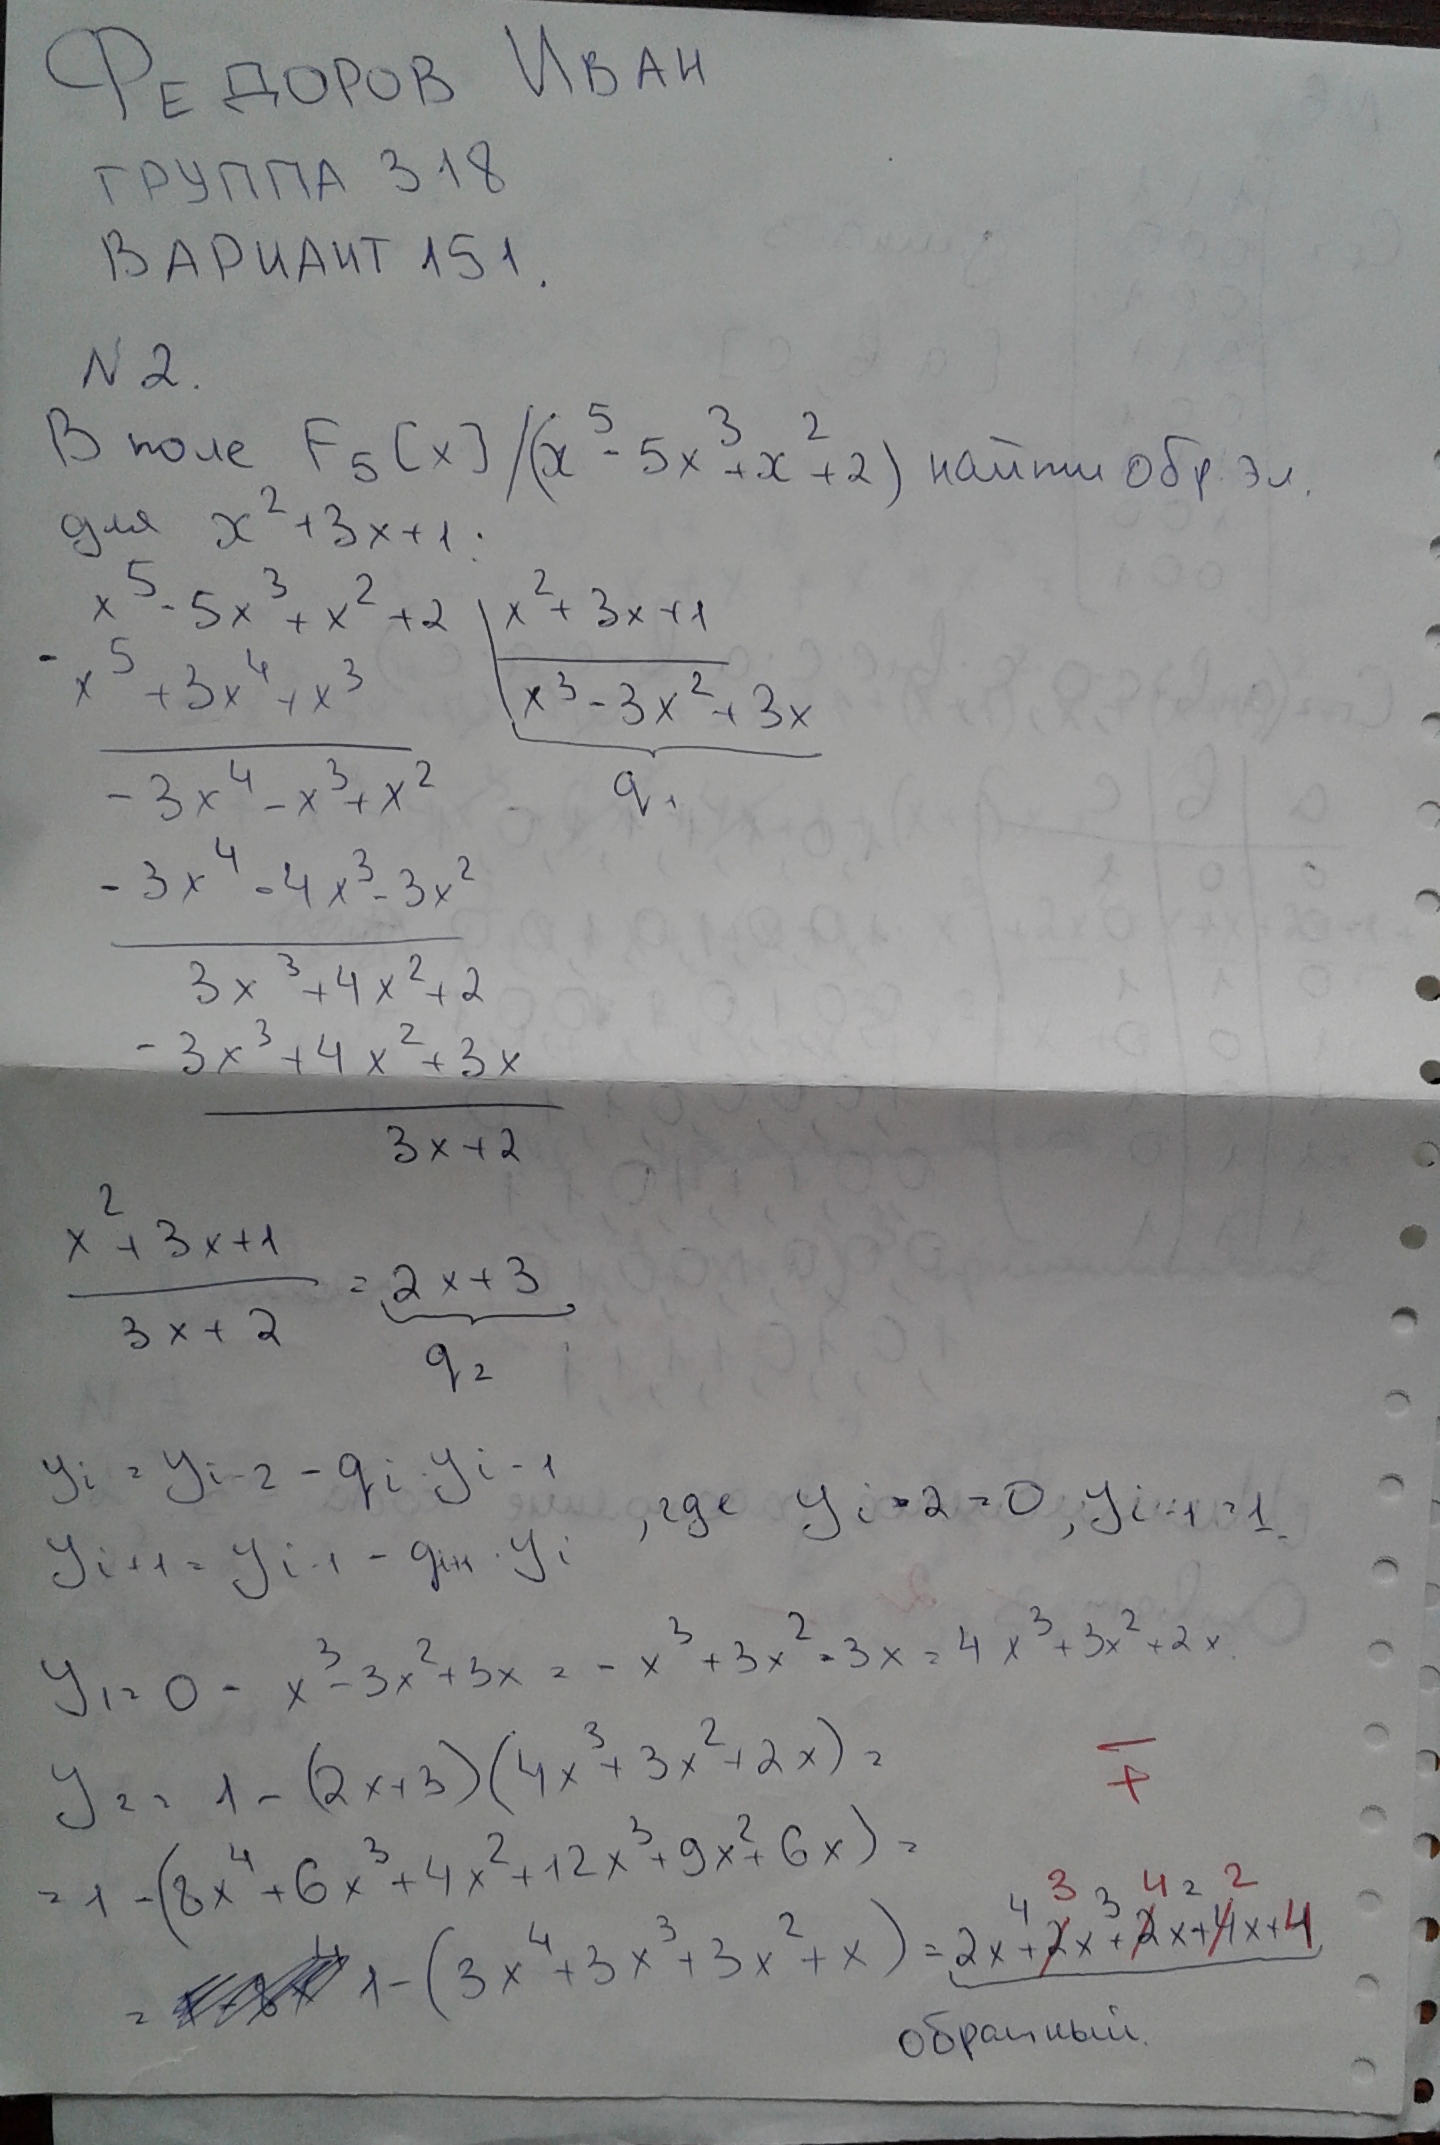 ФЕДОРОВ ИВАН
ГРУППА 318
ВАРИАНТ 151.
N 2.
В поле F₅[x]/(x⁵-5x³+x²+2) найти обр. эл.
для x²+3x+1:
x⁵-5x³+x²+2 | x²+3x+1
- x⁵+3x⁴+x³ | x³-3x²+3x
q₁
-3x⁴-x³+x²
-3x⁴-4x³-3x²
3x³+4x²+2
- 3x³+4x²+3x
3x+2
x²+3x+1
3x+2
= 2x+3
q₂
yᵢ = yᵢ₋₂ - qᵢ·yᵢ₋₁
yᵢ₊₁ = yᵢ₋₁ - qᵢ₊₁·yᵢ , где yᵢ₋₂=0, yᵢ₋₁=1.
y₁=0 - x³-3x²+3x = -x³+3x²-3x = 4x³+3x²+2x.
y₂ = 1-(2x+3)(4x³+3x²+2x)=
= 1-(8x⁴+6x³+4x²+12x³+9x²+6x)=
3 4 2
= 1-(3x⁴+3x³+3x²+x) = 2x⁴+2x³+2x²+4x+4
обратный.